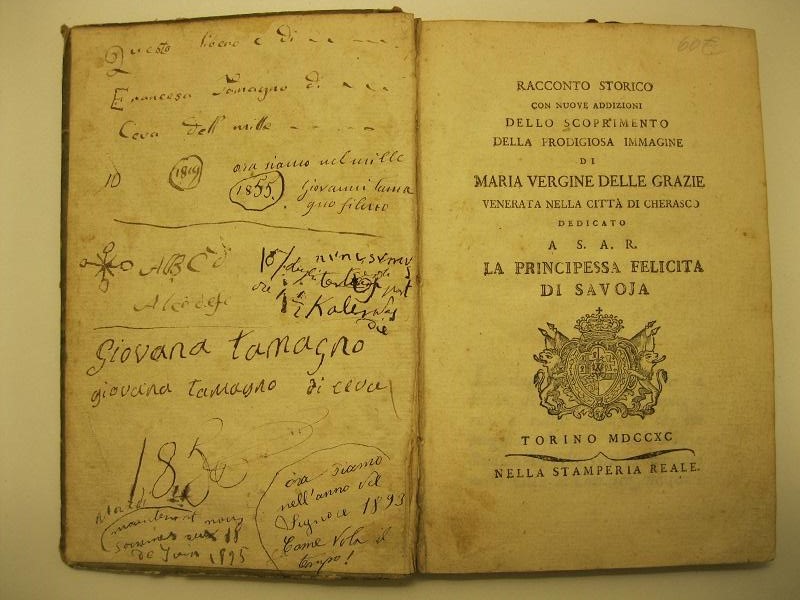 Questo libero e di
Francesa Tomagno di
Ceva dell mille
10 1849 ora siamo nel mille
1855. Giovanni tama
gno filippo
ABCD
18
Kalendas
die
Giovana tamagno
giovana tamagno di ceva
185
maintenant nous
sommes aux 18
de Juin 1895
ora siamo
nell'anno del
Signore 1893
Come vola il
tempo!
60€
RACCONTO STORICO
CON NUOVE ADDIZIONI
DELLO SCOPRIMENTO
DELLA PRODIGIOSA IMMAGINE
DI
MARIA VERGINE DELLE GRAZIE
VENERATA NELLA CITTÀ DI CHERASCO
DEDICATO
A S. A. R.
LA PRINCIPESSA FELICITA
DI SAVOJA
TORINO MDCCXC
NELLA STAMPERIA REALE.